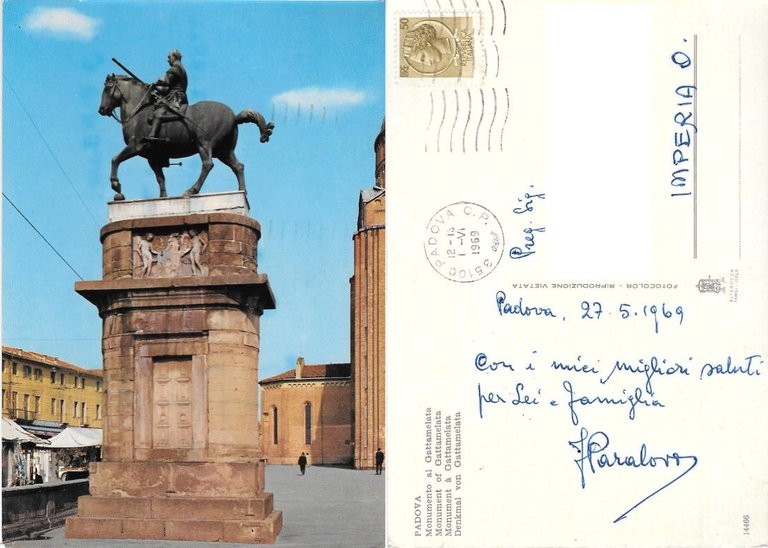 50
POSTE
REPVBBLICA
ITALIANA
PADOVA C.P.
12-13
1-VI
1969
35100
IMPERIA O.
Preg. Sig.
FOTOCOLOR - RIPRODUZIONE VIETATA
Padova, 27.5.1969
Con i miei migliori saluti
per Lei e famiglia
PADOVA
Monumento al Gattamelata
Monument of Gattamelata
Monument à Gattamelata
Denkmal von Gattamelata
14466